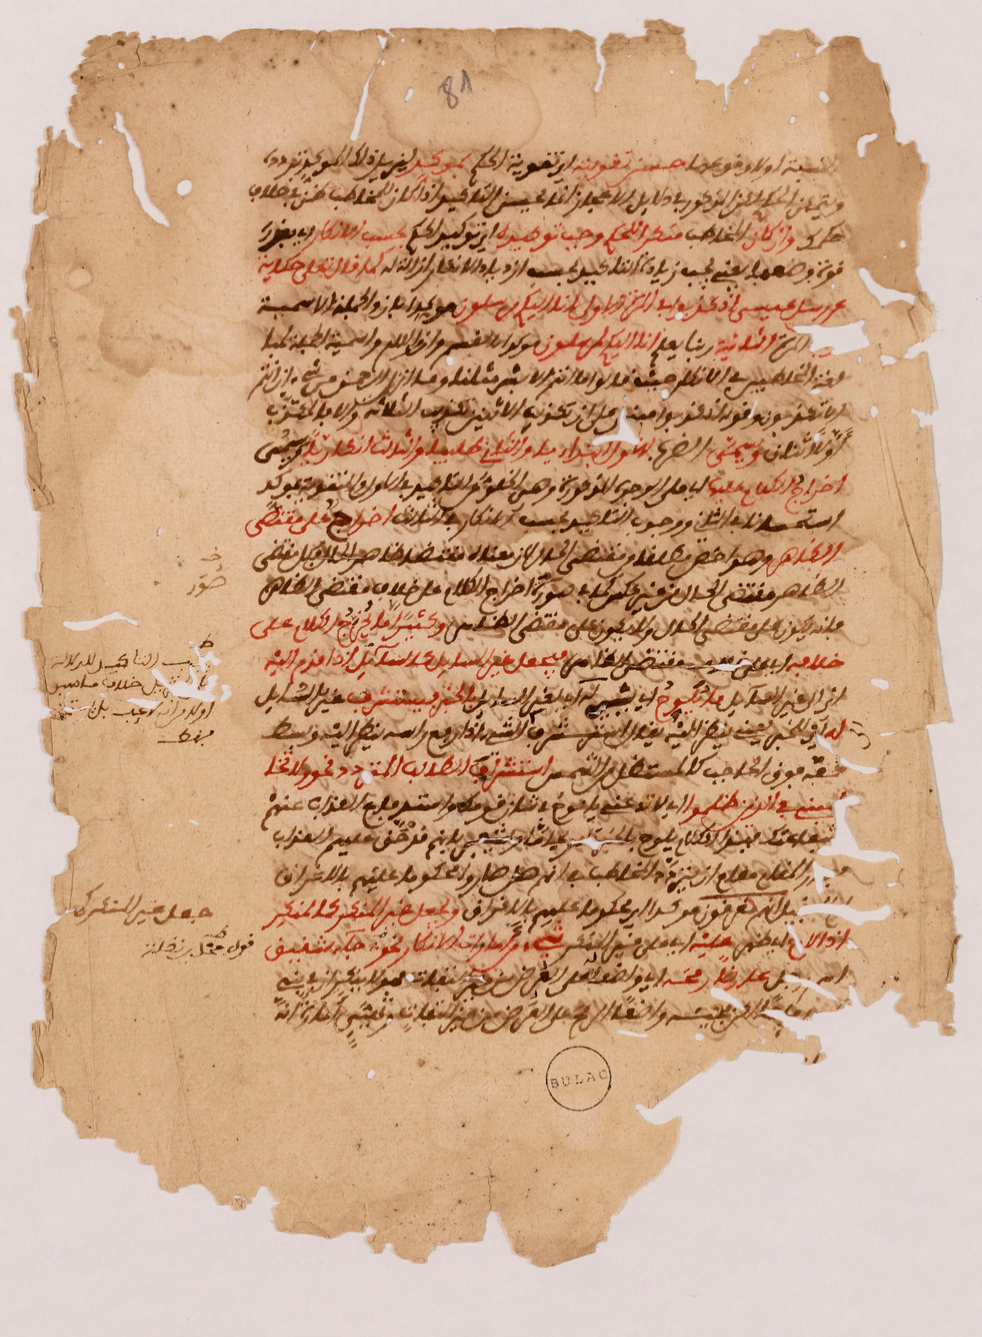 حسن تقويته اي تقوية الحكم بموكد ليزيل ذلك الموكد تردده
ويتمكن الحكم لكن المذكور في دلايل الاعجاز انما يحسن التاكيد اذا كان للمخاطب ظن في خلاف
حكمك وان كان المخاطب منكرا للحكم وجب توكيده اي توكيد الحكم بحسب الانكار اي بقدره
قوة وضعفا يعني يجب زيادة التاكيد بحسب ازدياد الانكار ازالة له كما قال تعلى حكاية
عن رسل عيسى اذ كذبوا في المرة الاولى انا اليكم مرسلون موكدا بان والجملة الاسمية
المرة الثانية ربنا يعلم انا اليكم لمرسلون موكدا بالقسم وان واللام واسمية الجملة لمبا
لغة المخاطبين في الانكار حيث قالوا ما انتم الا بشر مثلنا وما انزل الرحمن من شيء ان انتم
الا تكذبون وقوله اذ كذبوا مبني على ان تكذيب الاثنين تكذيب الثلاثة والا فالمكذب
اولا اثنان ويسمى الضرب الاول ابتداءيا والثاني طلبيا والثالث انكاريا ويسمى
اخراج الكلام عليها اي على الوجوه المذكورة وهي الخلو عن التاكيد في الاول والتقوية بموكد
استحسانا في الثاني ووجوب التاكيد بحسب الانكار في الثالث اخراجا على مقتضى
الظاهر وهو اخص مطلقا من مقتضى الحال لان معناه مقتضى ظاهر الحال فكل مقتضى
الظاهر مقتضى الحال من غير عكس كما في صورة اخراج الكلام على خلاف مقتضى الظاهر
فانه يكون على مقتضى الحال ولا يكون على مقتضى الظاهر وكثيرا ما يخرج الكلام على
خلافه اي على خلاف مقتضى الظاهر فيجعل غير السايل كالسايل اذا قدم اليه
اي الى غير السايل ما يلوح اي يشير له اي لغير السايل بالخبر فيستشرف غير السايل
له اي للخبر يعني ينظر اليه يقال استشرف الشيء اذا رفع راسه ينظر اليه وبسط
كفه فوق الحاجب كالمستظل من الشمس استشراف الطالب المتردد نحو ولا تخا
طبني في الذين ظلموا اي لا تدعني يا نوح في شان قومك واستدفاع العذاب عنهم
بشفاعتك فهذا الكلام يلوح بالخبر تلويحا ما ويشعر بانهم قد حق عليهم العذاب
فصار المقام مقام ان يتردد المخاطب في انهم هل صاروا محكوما عليهم بالاغراق
فقيل انهم مغرقون موكدا اي محكوما عليهم بالاغراق ويجعل غير المنكر كالمنكر
اذا لاح اي ظهر عليه اي على غير المنكر شيء من امارات الانكار نحو جاء شقيق
اسم رجل عارضا رمحه اي واضعا على العرض من غير التفات فهو لا ينكر ان في بني
رماحا لكن مجيئه واضعا الرمح على العرض من غير التفات وتهيئ امارة انه
صور
التاكيد للدلالة
خلاف ما سبق
جعل غير المنكر
BULAC